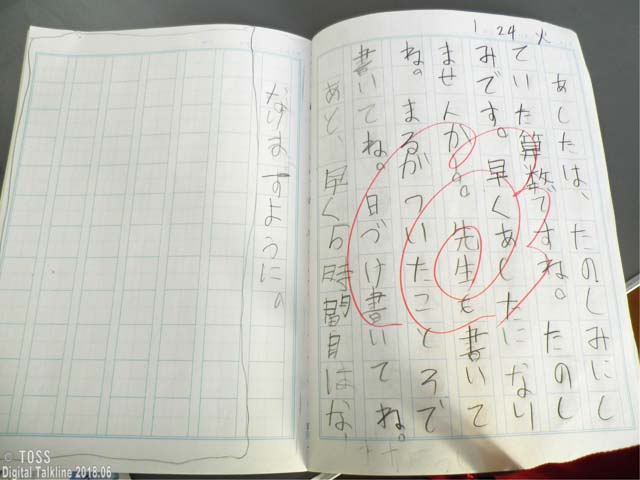 1.24 火
あしたは、たのしみにし
ていた算数ですね。たのし
みです。早くあしたになり
ませんか。先生も書いて
ね。まるがついたことろで
書いてね。日づけ書いてね。
あと、早く6時間目はな、
ますように。
© TOSS
Digital Talkline 2018.06